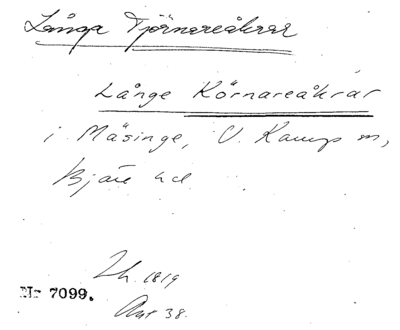 Långa Tjörnareåkrar
Långe Körnareåkrar
i Mäsinge, V. Karup sn,
Bjäre hd
Lh. 1819
Nr 7099.
Akt 38.